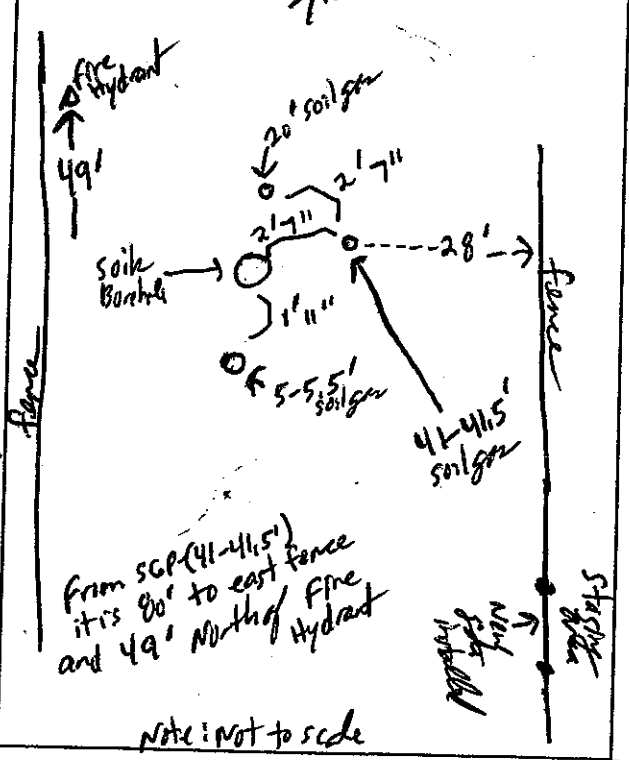 fire
Hydrant
49'
20' soil gas
2' 7"
2' 7"
28'
soil
Borehole
fence
1' 11"
5-5.5'
soil gas
fence
41-41.5'
soil gas
From SGP-(41-41.5')
it is 80' to east fence
and 49' North of Fire
Hydrant
New
installed
Note: Not to scale